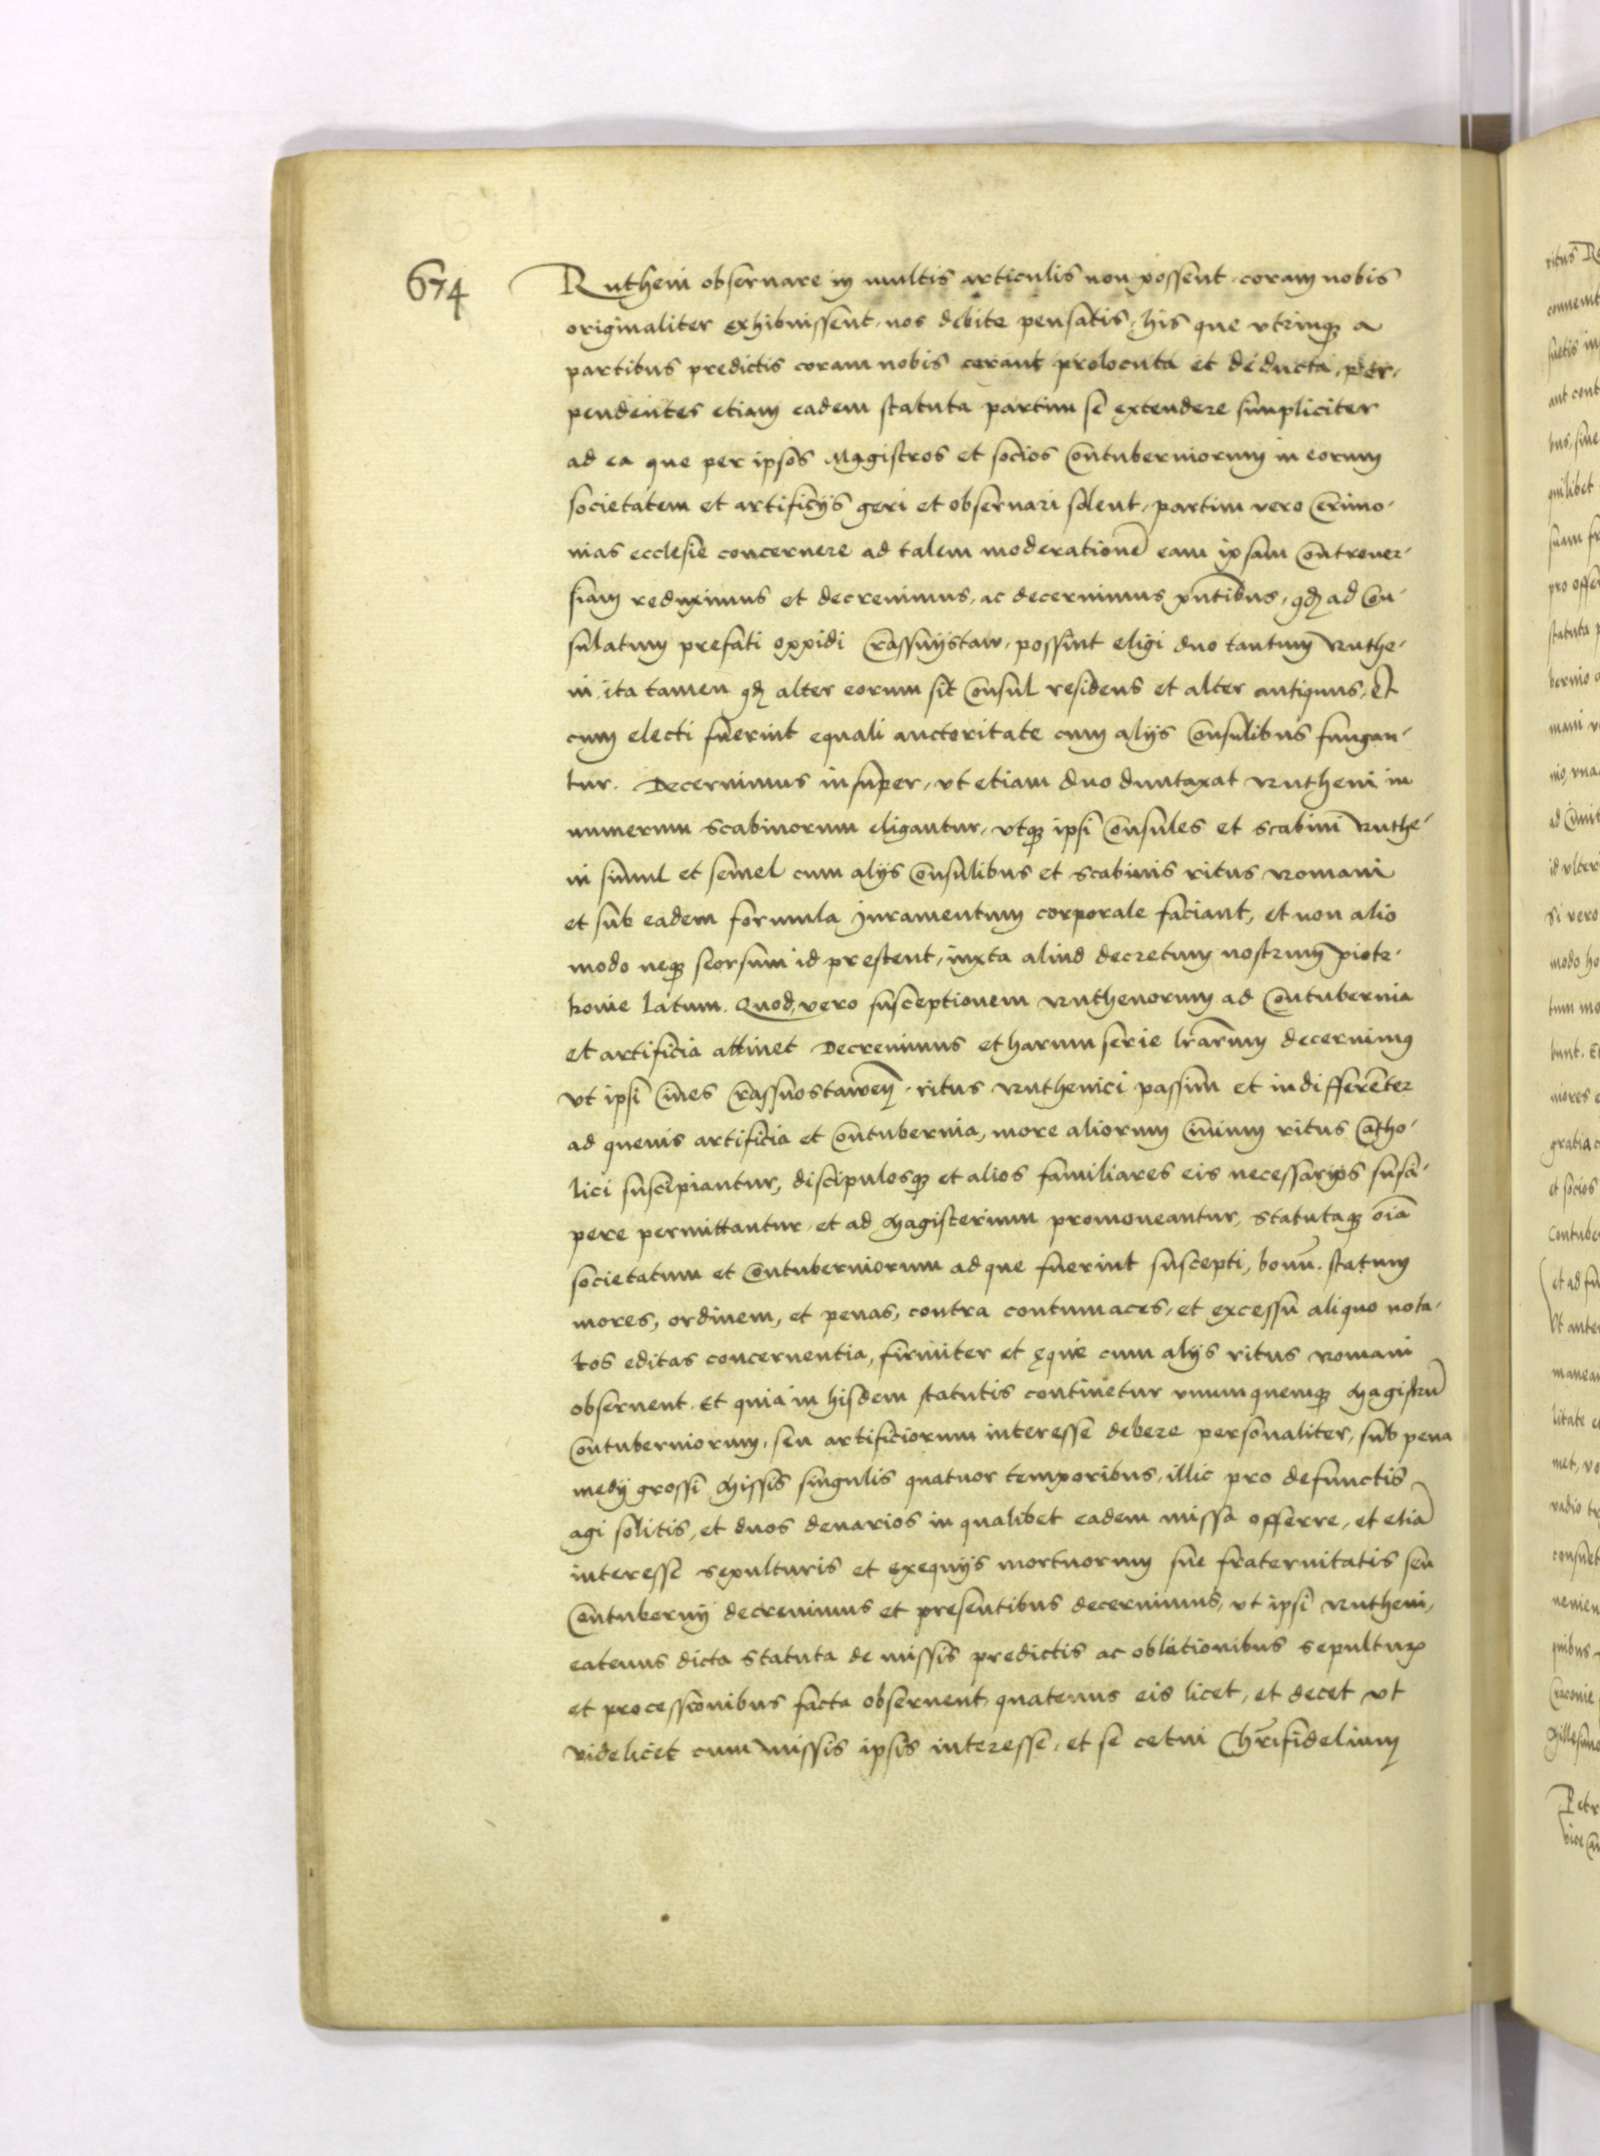 674
Rutheni obseruare in multis articulis non possent, coram nobis
originaliter exhibuissent, nos debite pensatis, his que vtrinqꝫ a
partibus predictis coram nobis erant prolocuta et deducta, per-
pendentes etiam eadem statuta partim se extendere simpliciter
ad ea que per ipsos Magistros et socios Contuberniorum in eorum
societatem et artificijs geri et obseruari solent, partim vero Cerimo-
nias ecclesie concernere ad talem moderationē eam ipsam Controuer-
siam reduximus et decreuimus, ac decernimus pn̄tibus, qđ ad Con-
sulatum prefati oppidi Crassnijstaw, possint eligi duo tantum Ruthe-
ni, ita tamen qđ alter eorum sit Consul residens et alter antiquus, et
cum electi fuerint equali auctoritate cum alijs Consulibus fungan-
tur. Decernimus insuper, vt etiam duo duntaxat Rutheni in
numerum scabinorum eligantur, vtqꝫ ipsi Consules et scabini Ruthe-
ni simul et semel cum alijs Consulibus et scabinis ritus Romani
et sub eadem formula Juramentum corporale faciant, et non alio
modo neqꝫ seorsum id prestent, iuxta aliud decretum nostrum piotr-
kouie latum. Quod vero susceptionem Ruthenorum ad Contubernia
et artificia attinet Decreuimus et harum serie lr̄arum decernimus
vt ipsi Ciues Crassnostawen̄, ritus Ruthenici passim et indifferēter
ad queuis artificia et Contubernia, more aliorum Ciuium ritus Catho-
lici suscipiantur, discipulosqꝫ et alios familiares eis necessarios susci-
pere permittantur, et ad Magisterium promoueantur, statutaqꝫ oīa
societatum et Contuberniorum ad que fuerint suscepti, bonū. statum
mores, ordinem, et penas, contra contumaces, et excessu aliquo nota-
tos editas concernentia, firmiter et ęque cum alijs ritus Romani
obseruent. Et quia in hisdem statutis continetur vnumquemqꝫ Magistrū
Contuberniorum, seu artificiorum interesse debere personaliter, sub pena
medij grossi Missis singulis quatuor temporibus, illic pro defunctis
agi solitis, et duos denarios in qualibet eadem missa offerre, et etiā
interesse sepulturis et exequijs mortuorum sue fraternitatis seu
Contubernij decreuimus et presentibus decernimus, vt ipsi Rutheni,
eatenus dicta statuta de missis predictis ac oblationibus sepulturꝫ
et processionibus facta obseruent, quatenus eis licet, et decet vt
videlicet cum missis ipsis interesse, et se cetui Chr̄ifidelium